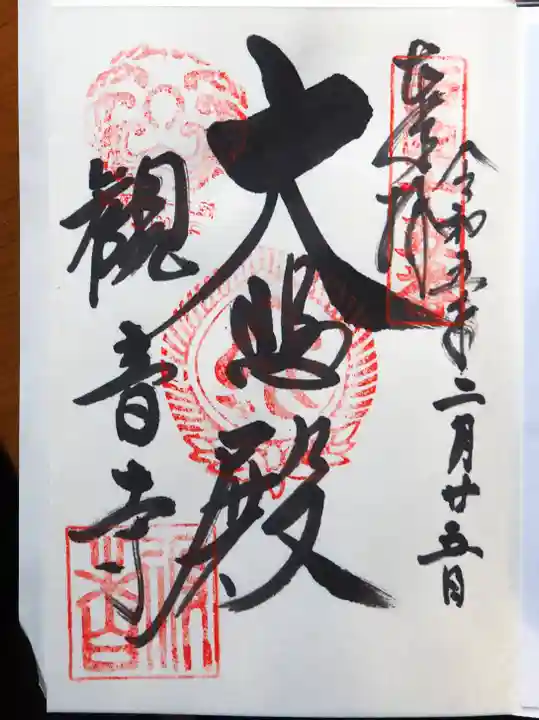 奉拝
令和五年二月廿五日
大悲殿
観音寺